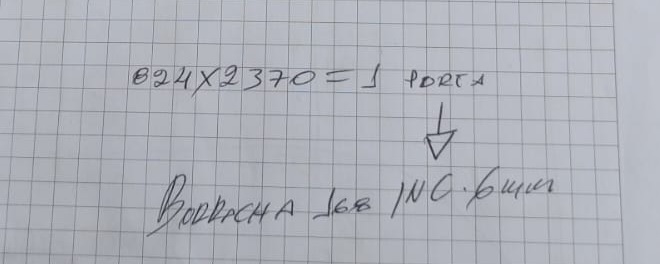 824X2370=1 PORTA
BORRACHA 168 INC. 6mm